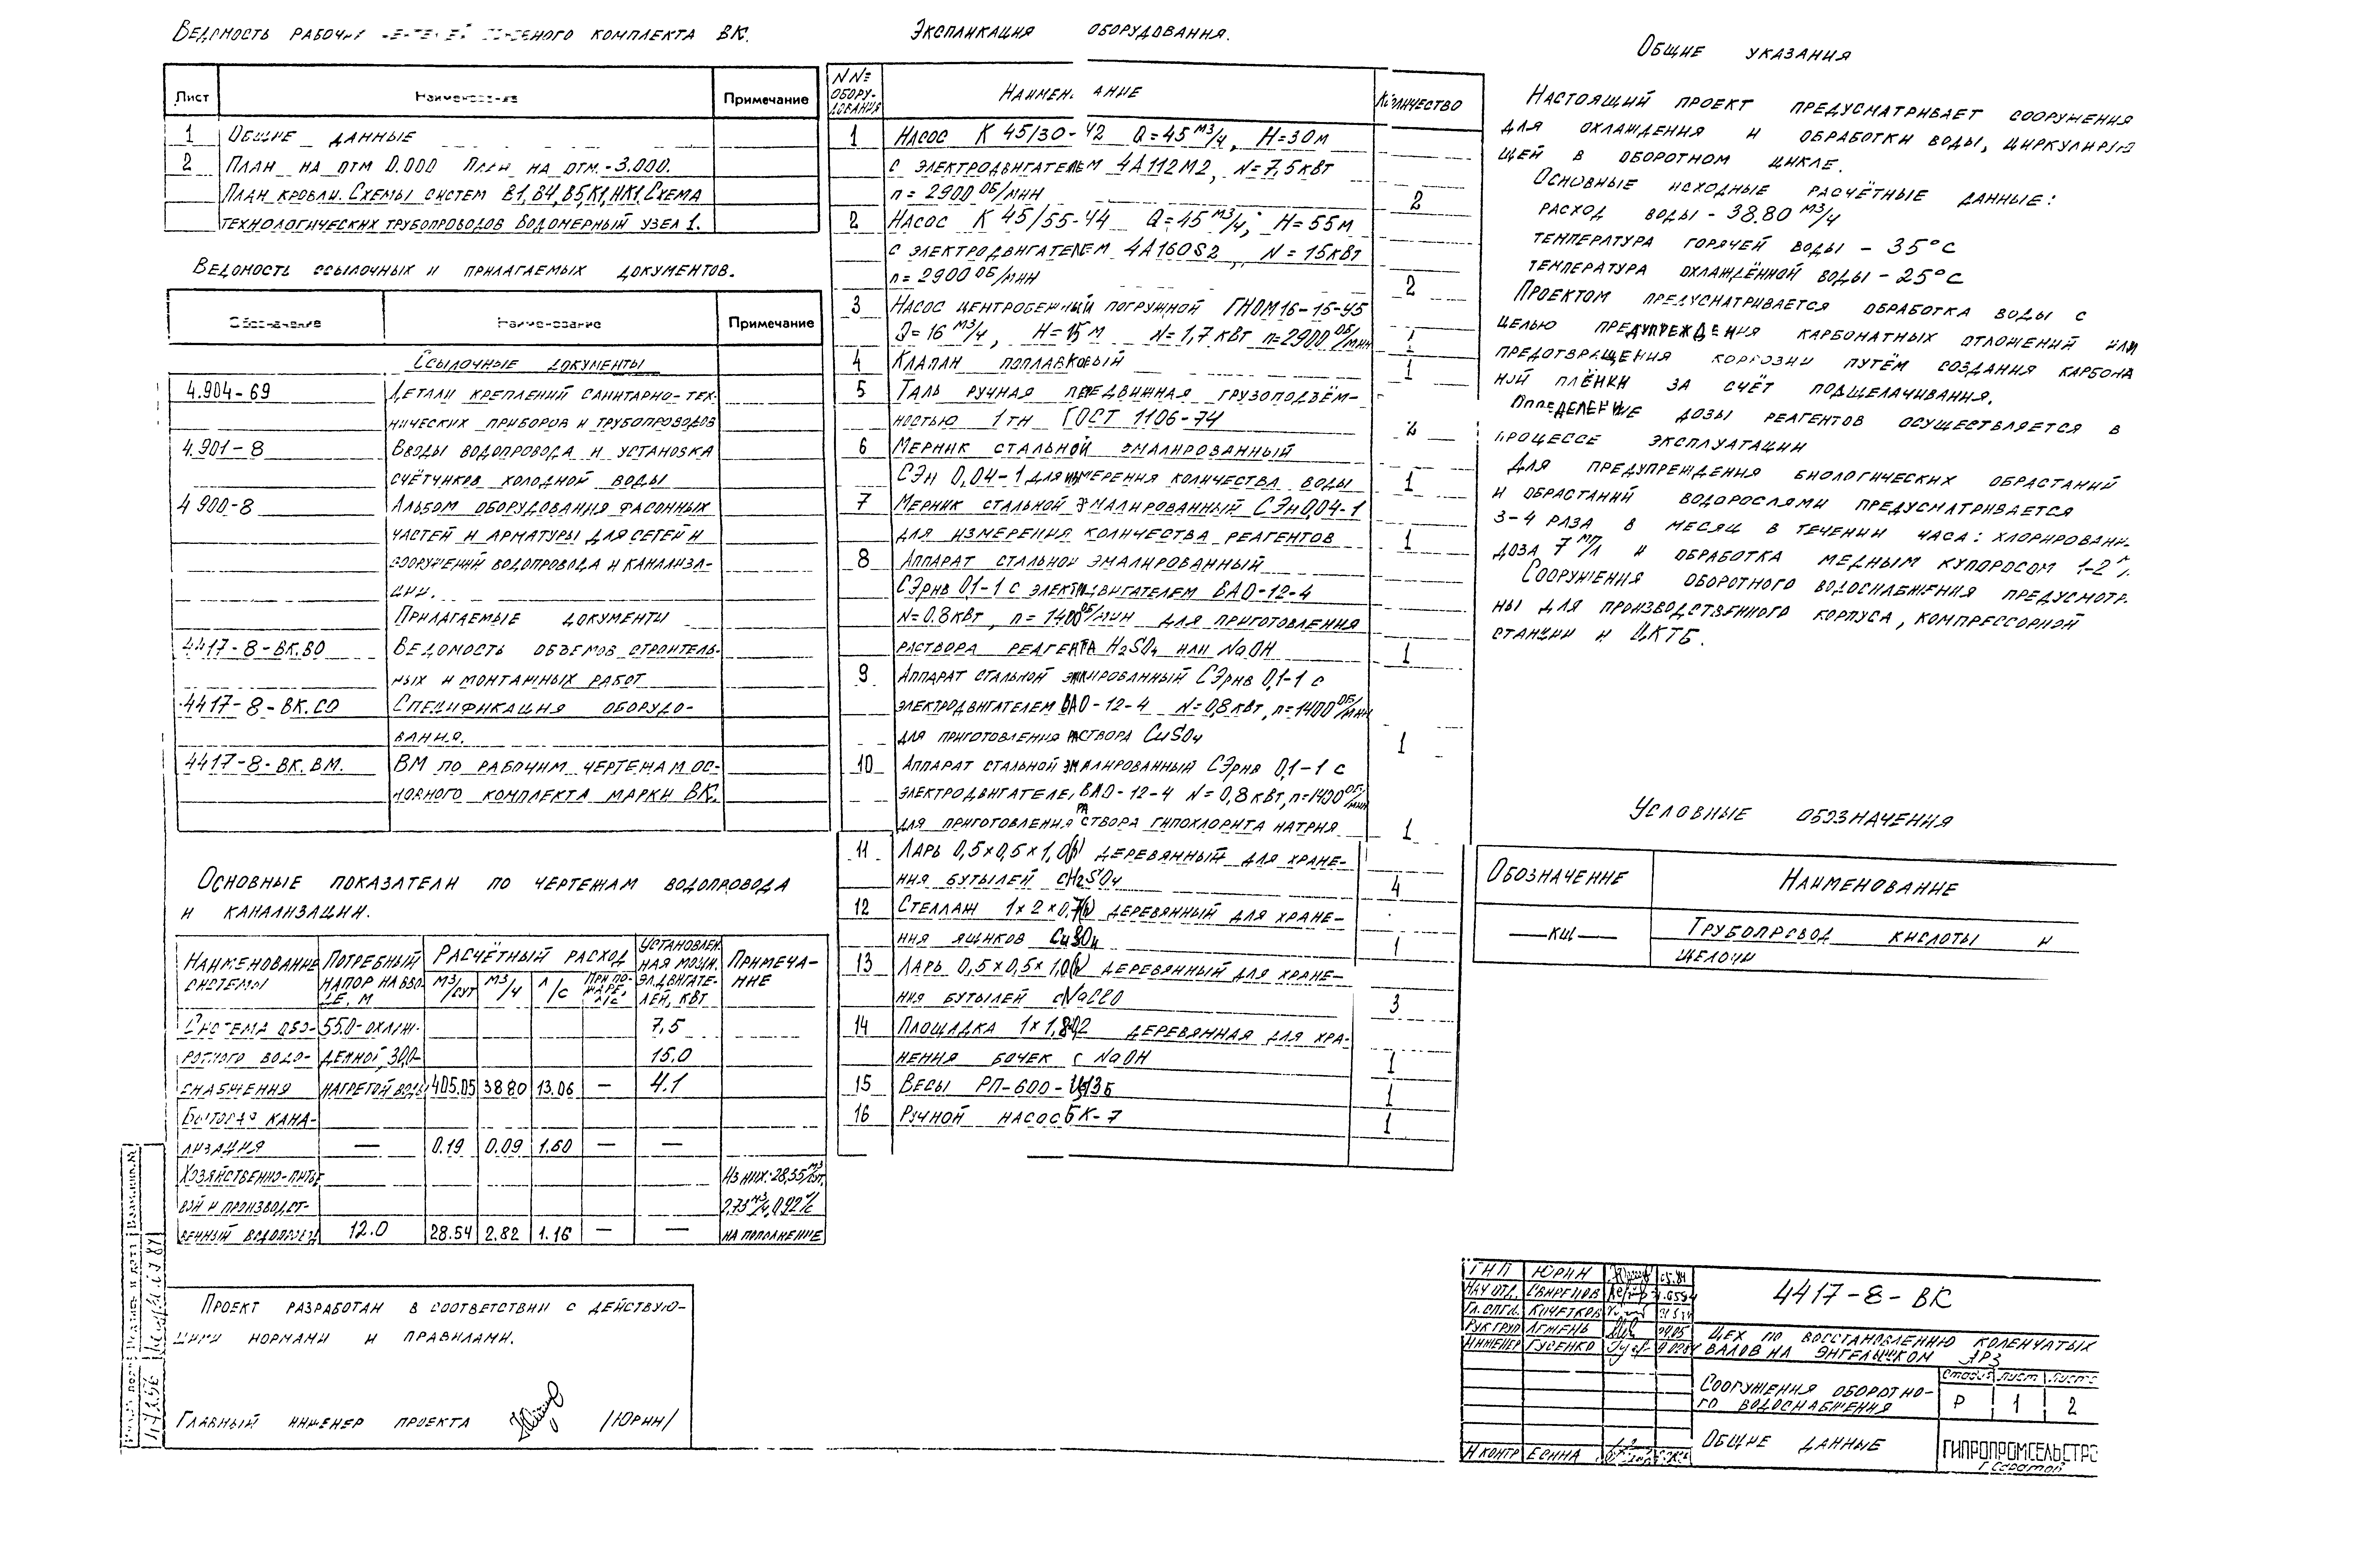 Ведомость рабочих ного комплекта ВК.
Лист Наименование Примечание
1 Общие данные
2 План на отм 0.000 План на отм.-3.000.
План кровли. Схемы систем В1, В4, В5, К1, НК1. Схема
технологических трубопроводов Водомерный узел 1.
Ведомость ссылочных и прилагаемых документов.
Обозначение Наименование Примечание
Ссылочные документы
4.904-69 Детали креплений санитарно-тех-
нических приборов и трубопроводов
4.901-8 Вводы водопровода и установка
счётчиков холодной воды
4 900-8 Альбом оборудования фасонных
частей и арматуры для сетей и
сооружений водопровода и канализа-
ции.
Прилагаемые документы
4417-8-ВК.ВО Ведомость объемов строитель-
ных и монтажных работ
4417-8-ВК.СО Спецификация оборудо-
вания.
4417-8-ВК.ВМ. ВМ по рабочим чертежам ос-
новного комплекта марки ВК.
Основные показатели по чертежам водопровода
и канализации.
Наименование системы Потребный напор на вводе, м Расчётный расход Установлен. ная мощн. эл.двигате- лей, квт Примеча- ние
м3/сут м3/ч л/с При по- жаре, л/с
Система обо- 55.0-охлаж- 7,5
ротного водо- денной, 30,0- 15.0
снабжения нагретой воды 405.05 38.80 13.06 — 4.1
Бытовая кана-
лизация — 0.19 0.09 1.60 — —
Хозяйственно-питье Из них: 28,35 м3/сут,
вой и производст- 2,73 м3/ч, 0,92 л/с
венный водопровод 12.0 28.54 2.82 1.16 — — на пополнение
Проект разработан в соответствии с действую-
щими нормами и правилами.
Главный инженер проекта /Юрин/
Экспликация оборудования.
N№ обору- дования Наименование Количество
1 Насос К 45/30-У2 Q=45 м3/ч, H=30м
с электродвигателем 4А112М2, N=7,5квт
n=2900 об/мин 2
2 Насос К 45/55-У4 Q=45 м3/ч; H=55м
с электродвигателем 4А160S2, N=15квт
n=2900 об/мин 2
3 Насос центробежный погружной ГНОМ16-15-У5
Q=16 м3/ч, H=15м N=1,7 квт n=2900 об/мин 1
4 Клапан поплавковый 1
5 Таль ручная передвижная грузоподъём-
ностью 1тн ГОСТ 1106-74 2
6 Мерник стальной эмалированный
СЭн 0,04-1 для измерения количества воды 1
7 Мерник стальной эмалированный СЭн0,04-1
для измерения количества реагентов 1
8 Аппарат стальной эмалированный
СЭрнв 0.1-1 с электродвигателем ВАО-12-4
N=0.8квт, n=1400 об/мин для приготовления
раствора реагента H2SO4 или NaOH 1
9 Аппарат стальной эмалированный СЭрнв 0,1-1 с
электродвигателем ВАО-12-4 N=0,8 квт, n=1400 об/мин
для приготовления раствора CuSO4 1
10 Аппарат стальной эмалированный СЭрнв 0,1-1 с
электродвигателем ВАО-12-4 N=0,8 квт, n=1400 об/мин
для приготовления раствора гипохлорита натрия 1
11 Ларь 0,5×0,5×1,0(h) деревянный для хране-
ния бутылей с H2SO4 4
12 Стеллаж 1×2×0,7(h) деревянный для хране-
ния ящиков CuSO4 1
13 Ларь 0,5×0,5×1,0(h) деревянный для хране-
ния бутылей с NaClO 3
14 Площадка деревянная для хра-
нения бочек с NaOH 1
15 Весы РП-600- 1
16 Ручной насос БК-7 1
Общие указания
Настоящий проект предусматривает сооружения
для охлаждения и обработки воды, циркулирую
щей в оборотном цикле.
Основные исходные расчётные данные:
расход воды - 38.80 м3/ч
температура горячей воды - 35°С
температура охлаждённой воды - 25°С
Проектом предусматривается обработка воды с
целью предупреждения карбонатных отложений или
предотвращения коррозии путём создания карбона
ной плёнки за счёт подщелачивания.
Определение дозы реагентов осуществляется в
процессе эксплуатации
Для предупреждения биологических обрастаний
и обрастаний водорослями предусматривается
3-4 раза в месяц в течении часа: хлорировани
доза 7 мг/л и обработка медным купоросом 1-2
Сооружения оборотного водоснабжения предусмотр.
ны для производственного корпуса, компрессорной
станции и ЦКТБ.
Условные обозначения
Обозначение Наименование
—кщ— Трубопровод кислоты и
щелочи
ГИП Юрин 05.84
Нач.отд.
Гл.спец. Кочетков
Рук.груп Лемень
Инженер Гусенко
Н контр Есина
4417-8-ВК
Цех по восстановлению коленчатых
валов на Энгельсском АРЗ
Сооружения оборотно-
го водоснабжения
Стадия Лист Листо
Р 1 2
Общие данные
ГИПРОПРОМСЕЛЬСТРО
г. Саратов